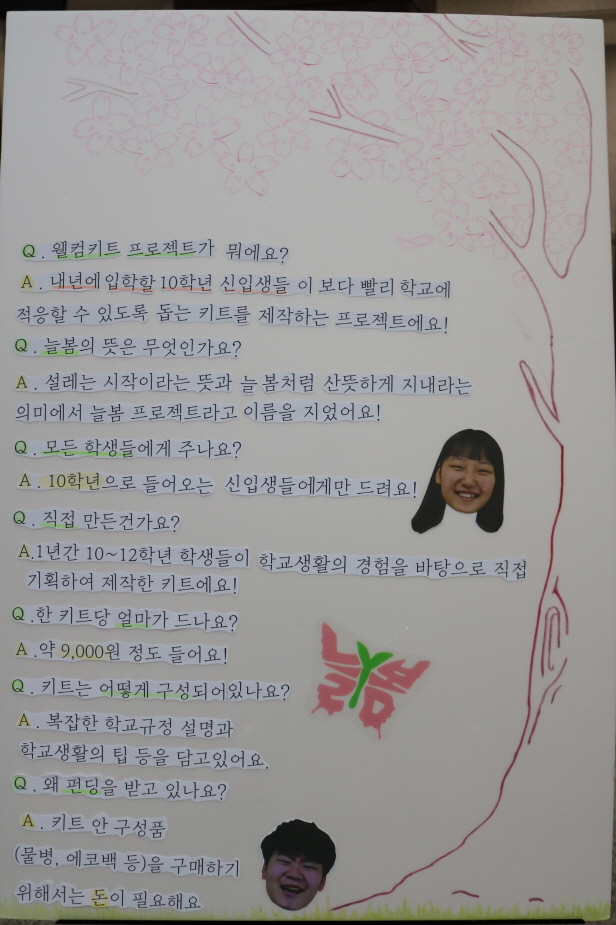 Q. 웰컴키트 프로젝트가 뭐에요?
A. 내년에 입학할 10학년 신입생들 이 보다 빨리 학교에
적응할 수 있도록 돕는 키트를 제작하는 프로젝트에요!
Q. 늘봄의 뜻은 무엇인가요?
A. 설레는 시작이라는 뜻과 늘 봄처럼 산뜻하게 지내라는
의미에서 늘봄 프로젝트라고 이름을 지었어요!
Q. 모든 학생들에게 주나요?
A. 10학년으로 들어오는 신입생들에게만 드려요!
Q. 직접 만든건가요?
A.1년간 10~12학년 학생들이 학교생활의 경험을 바탕으로 직접
기획하여 제작한 키트에요!
Q.한 키트당 얼마가 드나요?
A.약 9,000원 정도 들어요!
늘봄
Q. 키트는 어떻게 구성되어있나요?
A. 복잡한 학교규정 설명과
학교생활의 팁 등을 담고있어요.
Q. 왜 펀딩을 받고 있나요?
A. 키트 안 구성품
(물병, 에코백 등)을 구매하기
위해서는 돈이 필요해요